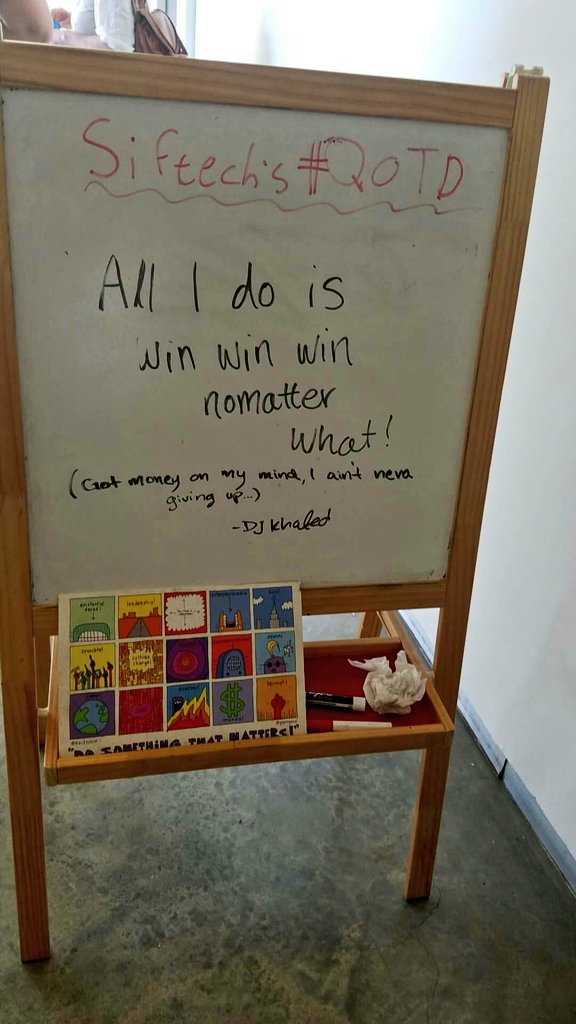 Siftech's #QOTD
All I do is
win win win
nomatter
what!
(Got money on my mind, I ain't neva
giving up...)
-DJ Khaled
leadership!
innovate!
"DO SOMETHING THAT MATTERS!"